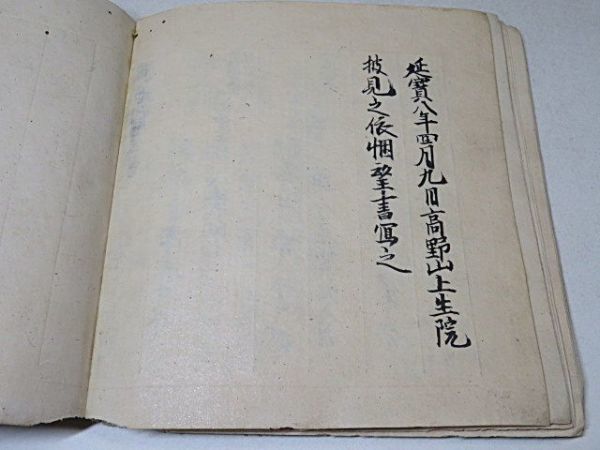 延寳八年四月九日高野山上生院
披見之依悃望書写之